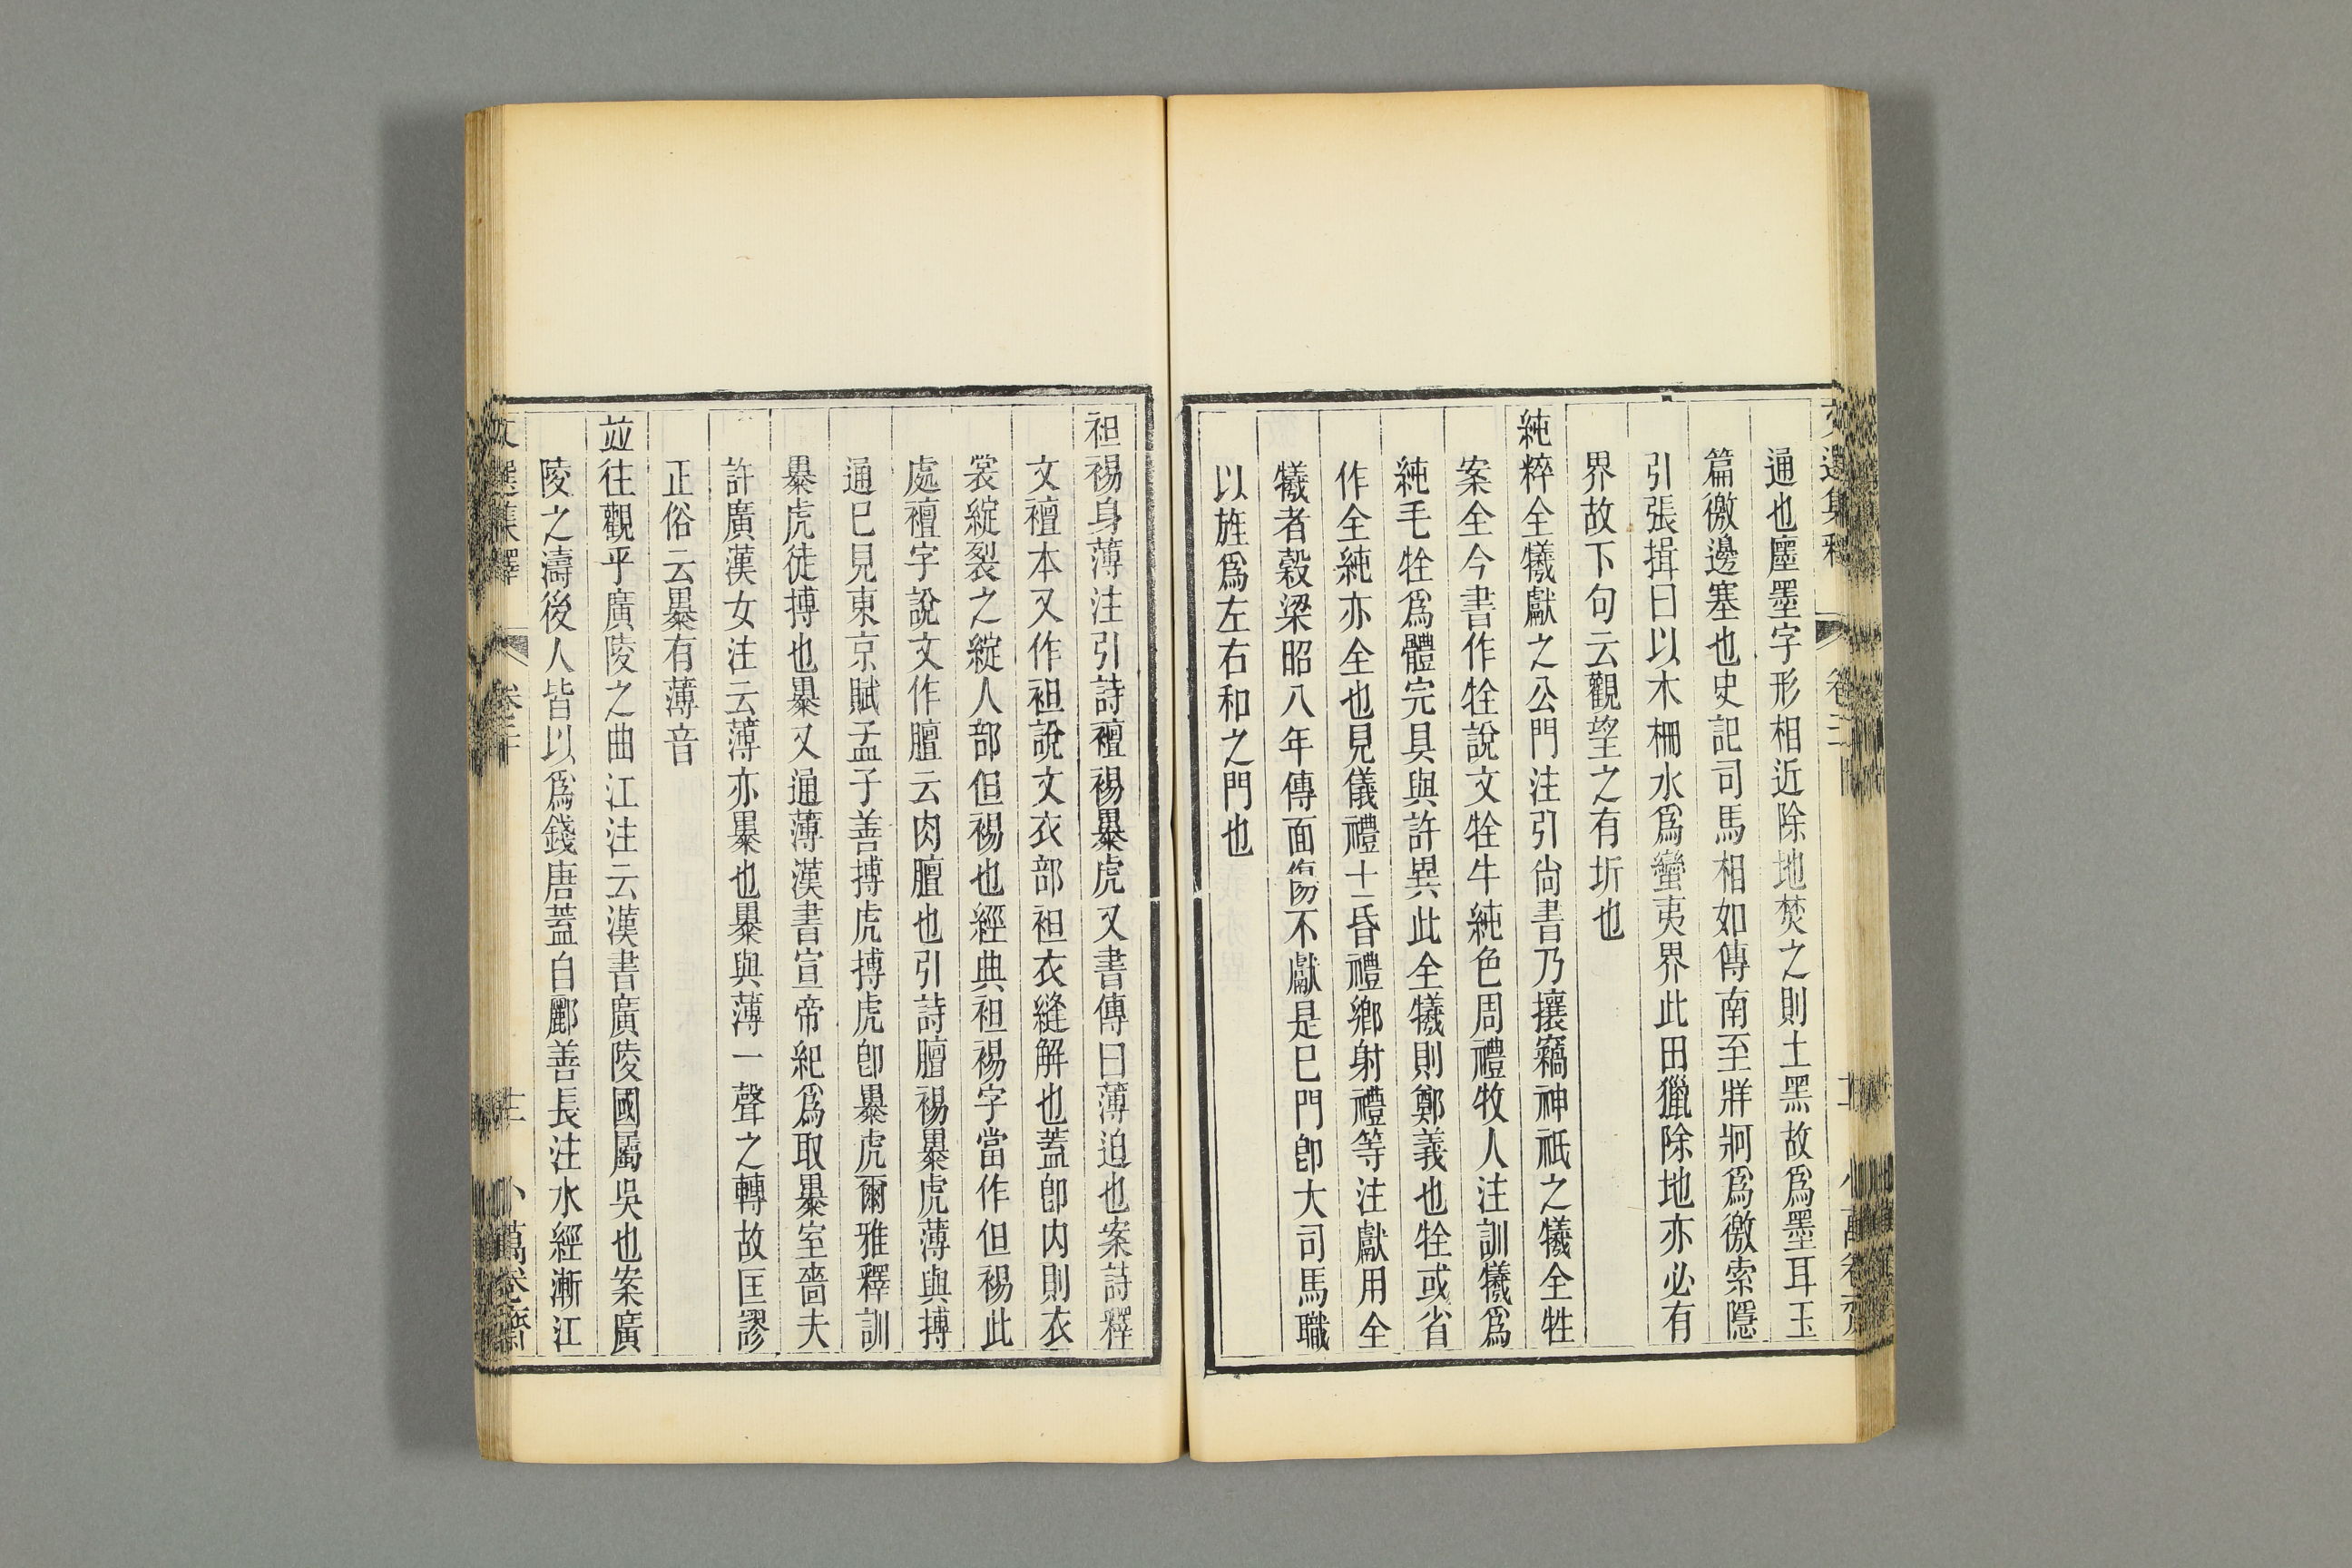 通也廛墨字形相近除地焚之則土黑故爲墨耳玉
篇徼邊塞也史記司馬相如傳南至牂牁爲徼索隱
引張揖曰以木柵水爲蠻夷界此田獵除地亦必有
界故下句云觀望之有圻也
純粹全犧獻之公門注引尙書乃攘竊神祇之犧全牲
案全今書作牷說文牷牛純色周禮牧人注訓犧爲
純毛牷爲體完具與許異此全犧則鄭義也牷或省
作全純亦全也見儀禮士昏禮鄉射禮等注獻用全
犧者穀梁昭八年傳面傷不獻是已門卽大司馬職
以旌爲左右和之門也
袒裼身薄注引詩襢裼暴虎又書傳曰薄迫也案詩釋
文襢本又作袒說文衣部袒衣縫解也蓋卽内則衣
裳綻裂之綻人部但裼也經典袒裼字當作但裼此
處襢字說文作膻云肉膻也引詩膻裼暴虎薄與搏
通已見東京賦孟子善搏虎搏虎卽暴虎爾雅釋訓
暴虎徒搏也暴又通薄漢書宣帝紀爲取暴室嗇夫
許廣漢女注云薄亦暴也暴與薄一聲之轉故匡謬
正俗云暴有薄音
竝往觀乎廣陵之曲江注云漢書廣陵國屬吳也案廣
陵之濤後人皆以爲錢唐蓋自酈善長注水經漸江
文選集釋
卷二十
小萬卷齋